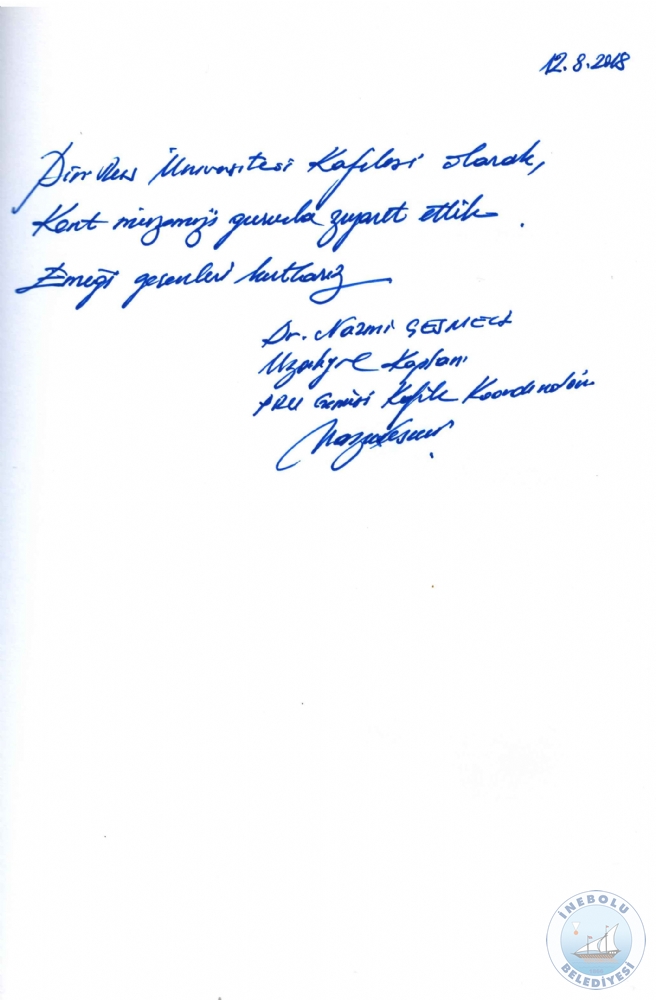 12.8.2018
Piri Reis Üniversitesi Kafilesi olarak,
Kent müzemizi gururla ziyaret ettik.
Emeği geçenleri kutlarız
Dr. Nazmi ÇEŞMECİ
Uzakyol Kaptanı
PRU Gemisi Kafile Koordinatörü
İNEBOLU
BELEDİYESİ